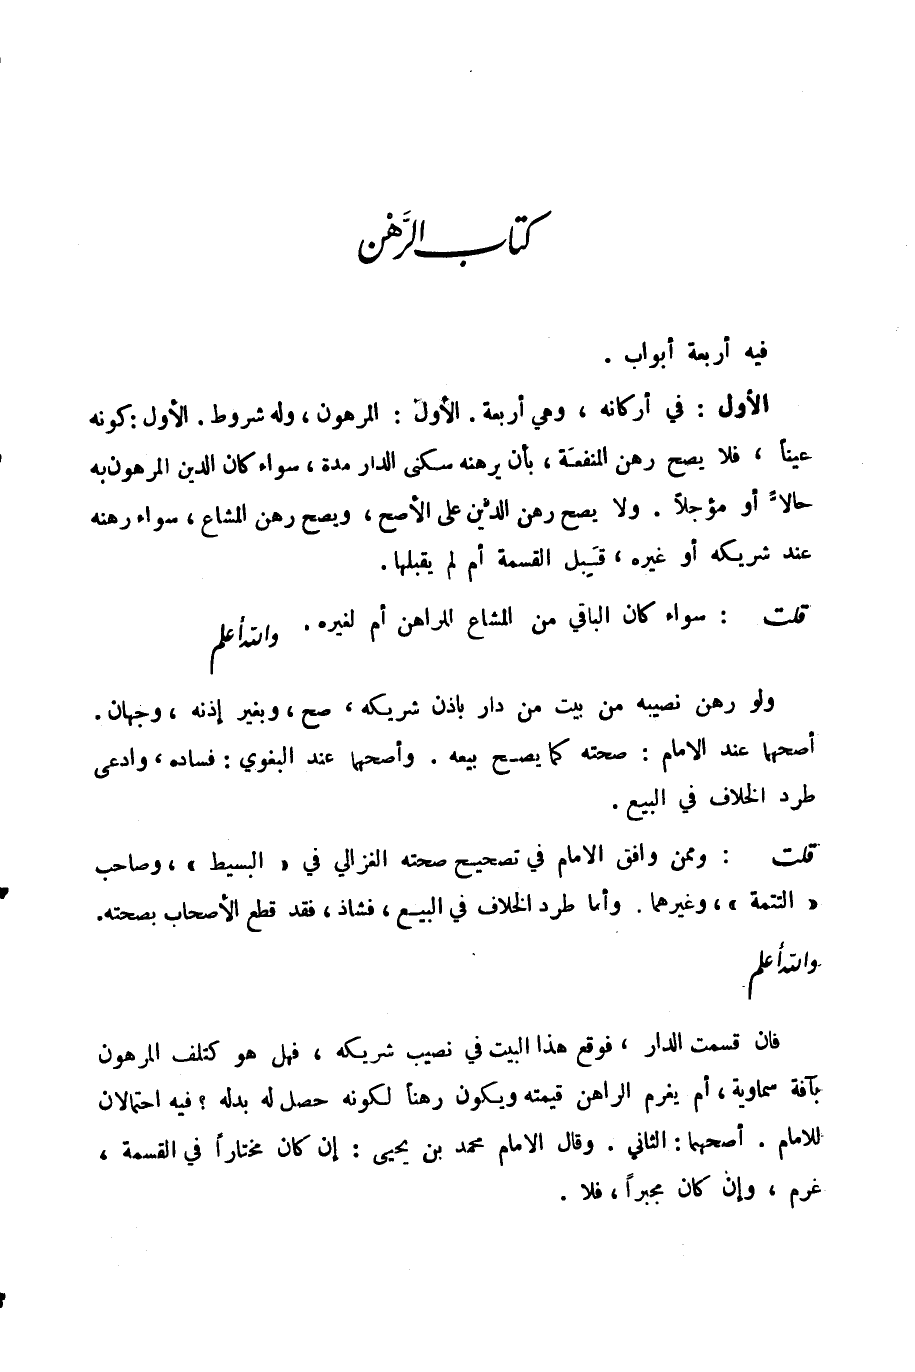 كتاب الرَّهْن
فيه أربعة أبواب .
الأول : في أركانه ، وهي أربعة . الأول : المرهون ، وله شروط . الأول : كونه
عيناً ، فلا يصح رهن المنفعَة ، بأن يرهنه سكنى الدار مدة ، سواء كان الدين المرهون به
حالاً أو مؤجلاً . ولا يصح رهن الدَّين على الأصح ، ويصح رهن المشاع ، سواء رهنه
عند شريكه أو غيره ، قَبِل القسمة أم لم يقبلها .
قلت : سواء كان الباقي من المشاع للراهن أم لغيره . والله أعلم
ولو رهن نصيبه من بيت من دار باذن شريكه ، صح ، وبغير إذنه ، وجهان .
أصحهما عند الامام : صحته كما يصح بيعه . وأصحهما عند البغوي : فساده ، وادعى
طرد الخلاف في البيع .
قلت : وممن وافق الامام في تصحيح صحته الغزالي في « البسيط » ، وصاحب
« التتمة » ، وغيرهما . وأما طرد الخلاف في البيع ، فشاذ ، فقد قطع الأصحاب بصحته .
والله أعلم
فان قسمت الدار ، فوقع هذا البيت في نصيب شريكه ، فهل هو كتلف المرهون
بآفة سماوية ، أم يغرم الراهن قيمته ويكون رهناً لكونه حصل له بدله ؟ فيه احتمالان
للامام . أصحهما : الثاني . وقال الامام محمد بن يحيى : إن كان مختاراً في القسمة ،
غرم ، وإن كان مجبراً ، فلا .